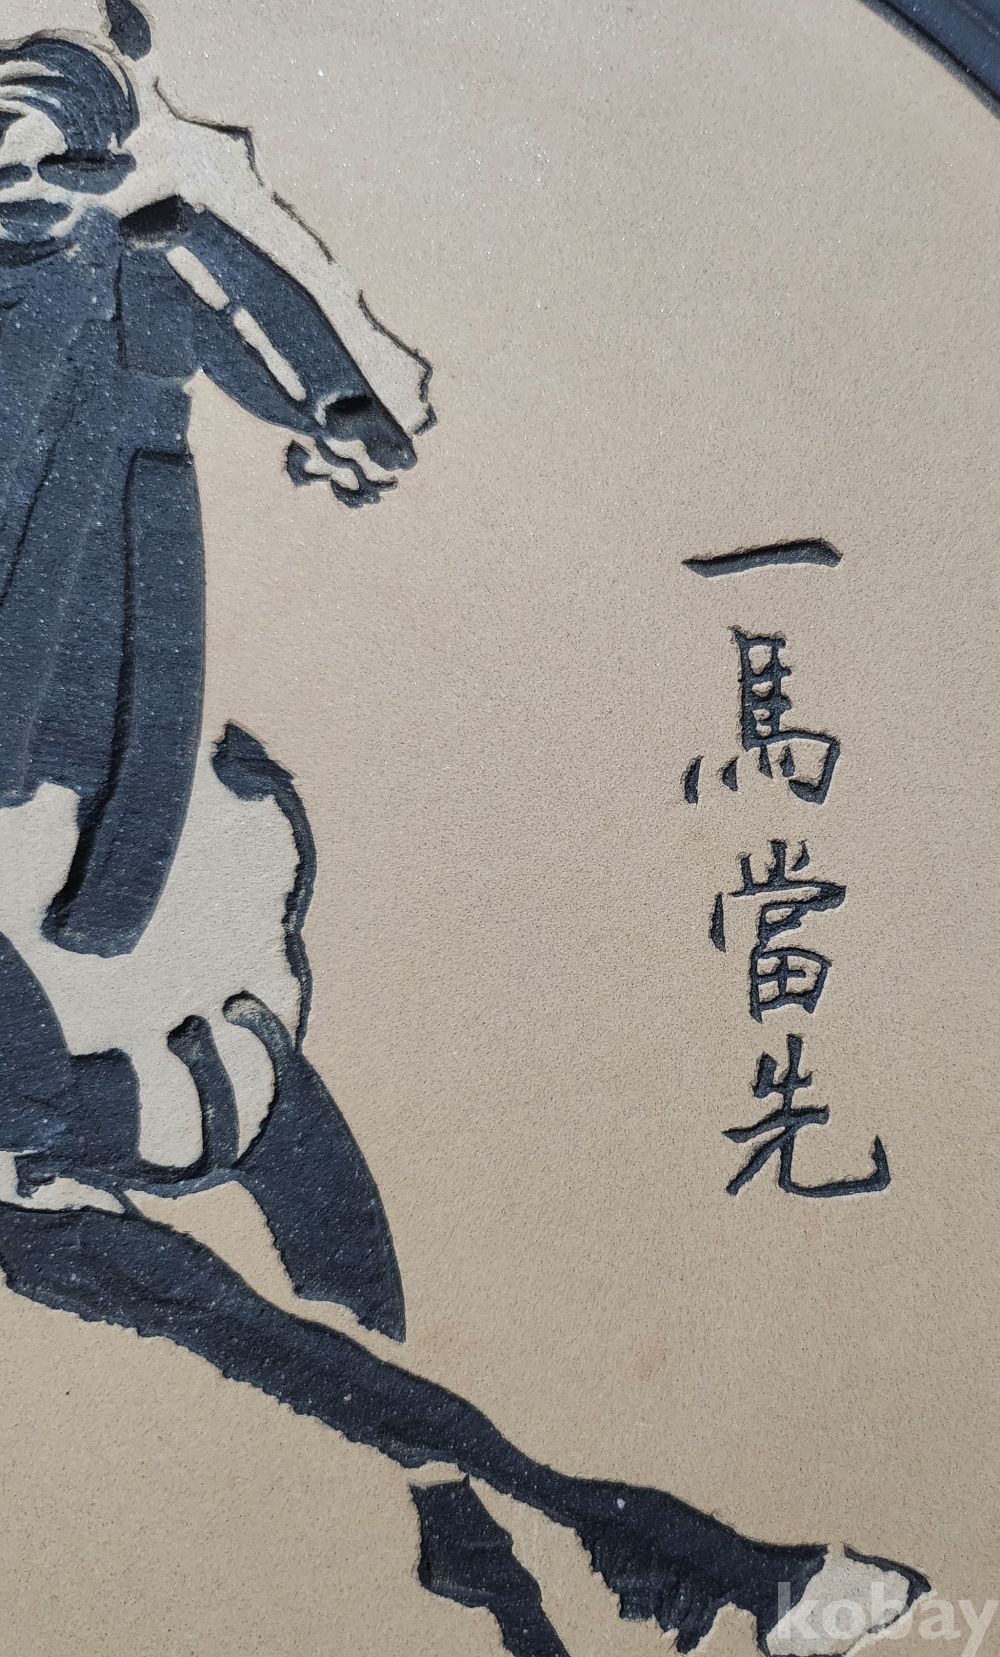 一馬當先
kobay